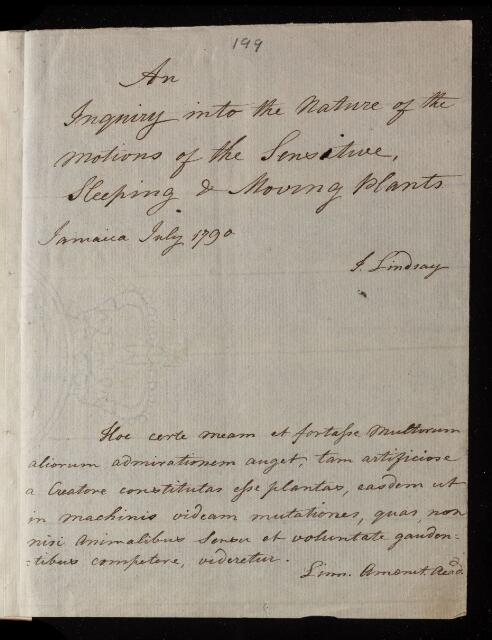 199
An
Inquiry into the Nature of the
Motions of the Sensitive,
Sleeping & Moving Plants
Jamaica July 1790
J. Lindsay
Hoc certe meam et fortaſse multorum
aliorum admirationem auget, tam artificiose
a Creatore constitutas eſse plantas, easdem ut
in machinis videam mutationes, quas non
nisi animalibus sensu et voluntate gauden-
-tibus competere, videretur.
Linn. Amœnit. Acad.